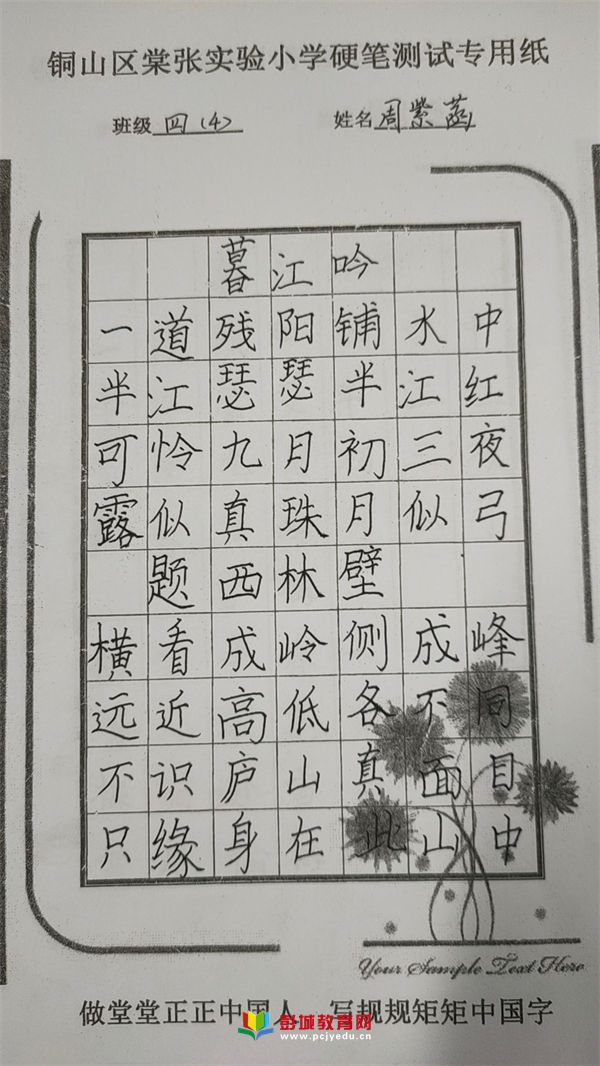 铜山区棠张实验小学硬笔测试专用纸
班级 四（4） 姓名 周紫菡
暮江吟
一道残阳铺水中
半江瑟瑟半江红
可怜九月初三夜
露似真珠月似弓
题西林壁
横看成岭侧成峰
远近高低各不同
不识庐山真面目
只缘身在此山中
Your Sample Text Here
做堂堂正正中国人 写规规矩矩中国字
彭城教育网
www.pcjyedu.cn